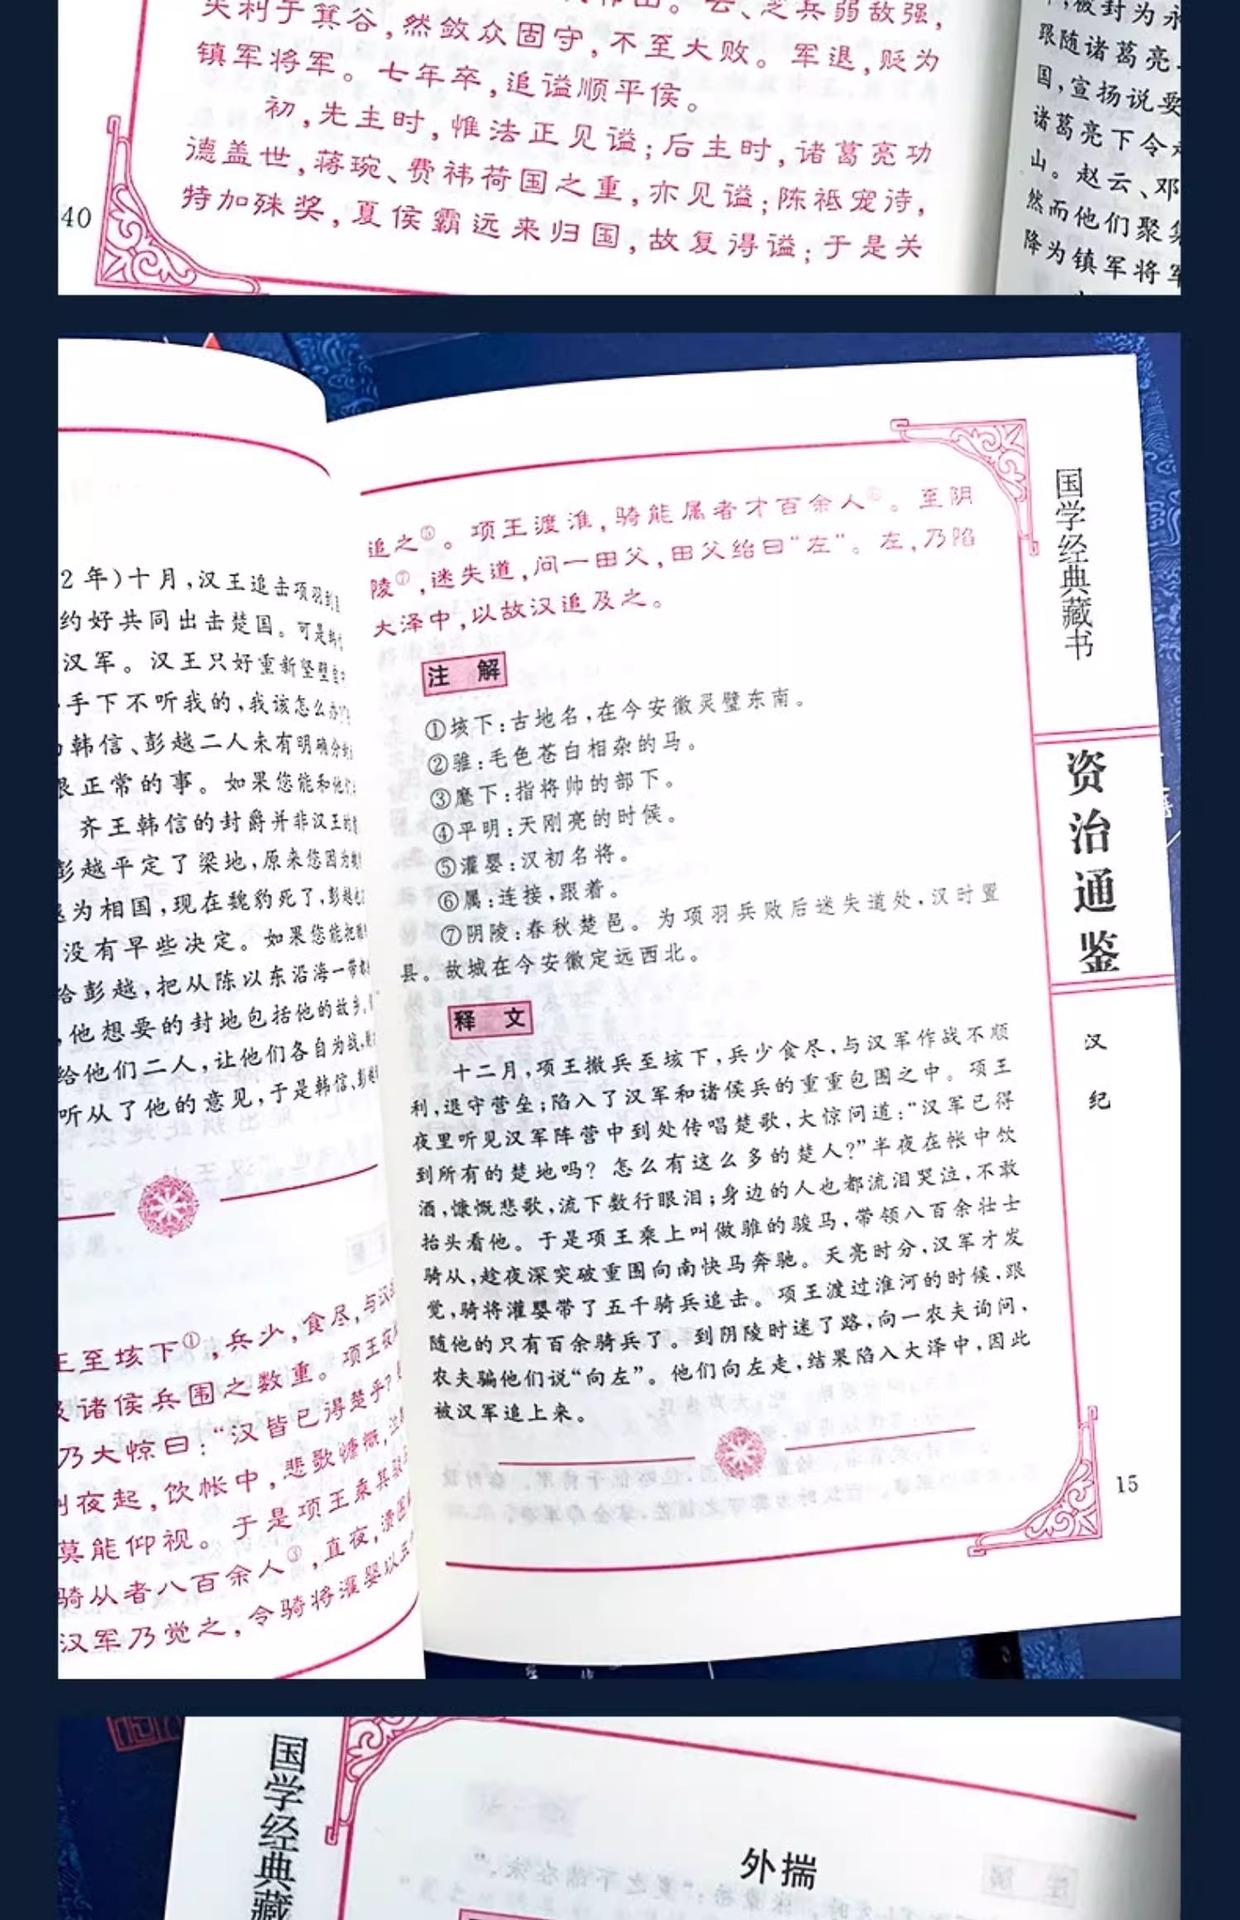 失利于箕谷,然敛众固守,不至大败。军退,贬为
镇军将军。七年卒,追谥顺平侯。
初,先主时,惟法正见谥;后主时,诸葛亮功
德盖世,蒋琬、费祎荷国之重,亦见谥;陈祗宠待,
特加殊奖,夏侯霸远来归国,故复得谥;于是关
40
被封为永
跟随诸葛亮
国,宣扬说要
诸葛亮下令
山。赵云、邓
然而他们聚
降为镇军将军
2年)十月,汉王追击项羽到
约好共同出击楚国。可是韩
汉军。汉王只好重新坚壁自
手下不听我的,我该怎么办
韩信、彭越二人未有明确分
很正常的事。如果您能和他们
齐王韩信的封爵并非汉王的
彭越平定了梁地,原来您因为
为相国,现在魏豹死了,彭越
没有早些决定。如果您能把
给彭越,把从陈以东沿海一带
,他想要的封地包括他的故乡,
给他们二人,让他们各自为战,
听从了他的意见,于是韩信、彭越
王至垓下①,兵少,食尽,与汉
及诸侯兵围之数重。项王夜
乃大惊曰:“汉皆已得楚乎?
则夜起,饮帐中,悲歌慷慨,
莫能仰视。于是项王乘其
骑从者八百余人③,直夜,溃围
汉军乃觉之,令骑将灌婴以五
追之⑤。项王渡淮,骑能属者才百余人⑥。至阴
陵⑦,迷失道,问一田父,田父绐曰“左”。左,乃陷
大泽中,以故汉追及之。
注 解
①垓下:古地名,在今安徽灵璧东南。
②骓:毛色苍白相杂的马。
③麾下:指将帅的部下。
④平明:天刚亮的时候。
⑤灌婴:汉初名将。
⑥属:连接,跟着。
⑦阴陵:春秋楚邑。为项羽兵败后迷失道处,汉时置
县。故城在今安徽定远西北。
释 文
十二月,项王撤兵至垓下,兵少食尽,与汉军作战不顺
利,退守营垒;陷入了汉军和诸侯兵的重重包围之中。项王
夜里听见汉军阵营中到处传唱楚歌,大惊问道:“汉军已得
到所有的楚地吗?怎么有这么多的楚人?”半夜在帐中饮
酒,慷慨悲歌,流下数行眼泪;身边的人也都流泪哭泣,不敢
抬头看他。于是项王乘上叫做骓的骏马,带领八百余壮士
骑从,趁夜深突破重围向南快马奔驰。天亮时分,汉军才发
觉,骑将灌婴带了五千骑兵追击。项王渡过淮河的时候,跟
随他的只有百余骑兵了。到阴陵时迷了路,向一农夫询问,
农夫骗他们说“向左”。他们向左走,结果陷入大泽中,因此
被汉军追上来。
国学经典藏书
资治通鉴
汉纪
15
国学经典藏
外揣